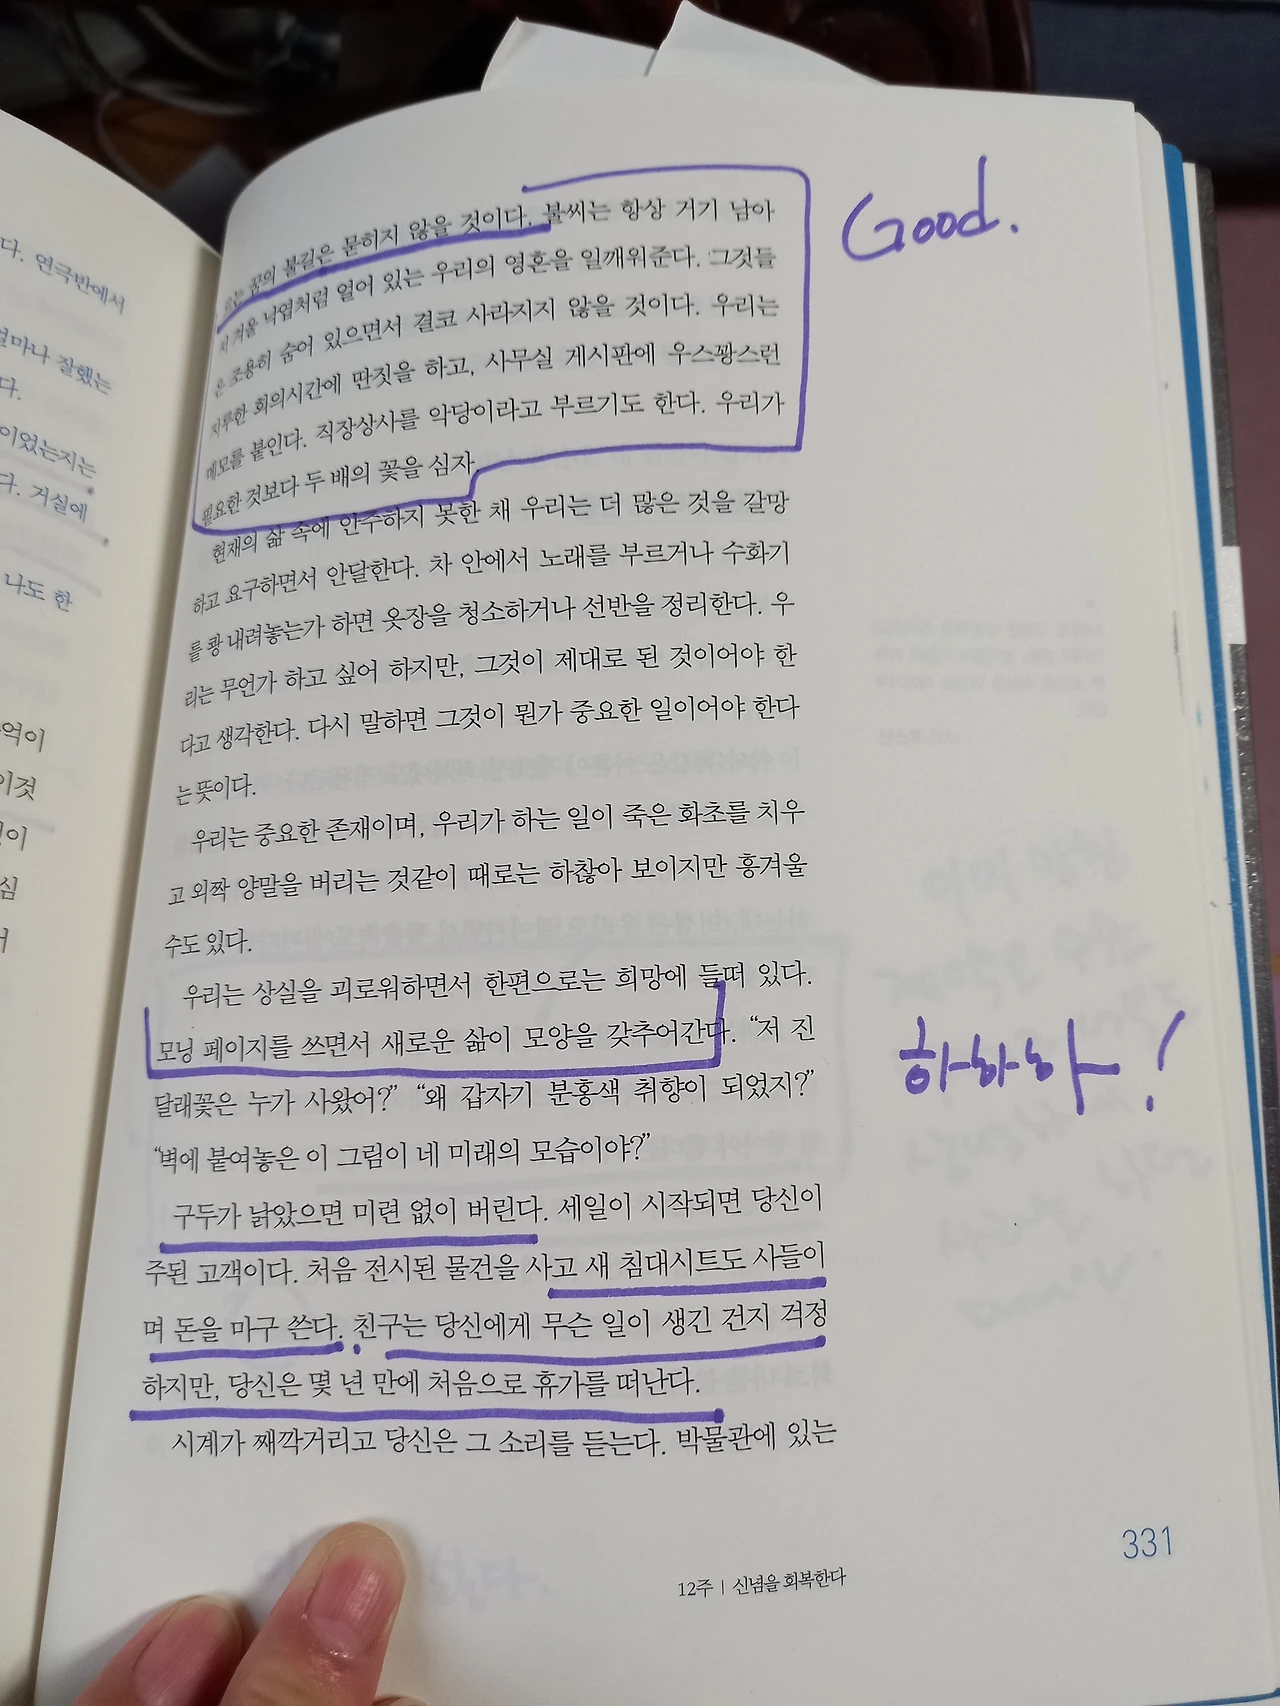 다. 연극반에서
얼마나 잘했는
다.
이었는지는
다. 거실에
나도 한
억이
이것
이
심
꿈의 불길은 묻히지 않을 것이다. 불씨는 항상 거기 남아
겨울 낙엽처럼 얼어 있는 우리의 영혼을 일깨워준다. 그것들
은 조용히 숨어 있으면서 결코 사라지지 않을 것이다. 우리는
지루한 회의시간에 딴짓을 하고, 사무실 게시판에 우스꽝스런
메모를 붙인다. 직장상사를 악당이라고 부르기도 한다. 우리가
필요한 것보다 두 배의 꽃을 심자.
현재의 삶 속에 안주하지 못한 채 우리는 더 많은 것을 갈망
하고 요구하면서 안달한다. 차 안에서 노래를 부르거나 수화기
를 쾅 내려놓는가 하면 옷장을 청소하거나 선반을 정리한다. 우
리는 무언가 하고 싶어 하지만, 그것이 제대로 된 것이어야 한
다고 생각한다. 다시 말하면 그것이 뭔가 중요한 일이어야 한다
는 뜻이다.
우리는 중요한 존재이며, 우리가 하는 일이 죽은 화초를 치우
고 외짝 양말을 버리는 것같이 때로는 하찮아 보이지만 흥겨울
수도 있다.
우리는 상실을 괴로워하면서 한편으로는 희망에 들떠 있다.
모닝 페이지를 쓰면서 새로운 삶이 모양을 갖추어간다. “저 진
달래꽃은 누가 사왔어?” “왜 갑자기 분홍색 취향이 되었지?”
“벽에 붙여놓은 이 그림이 네 미래의 모습이야?”
구두가 낡았으면 미련 없이 버린다. 세일이 시작되면 당신이
주된 고객이다. 처음 전시된 물건을 사고 새 침대시트도 사들이
며 돈을 마구 쓴다. 친구는 당신에게 무슨 일이 생긴 건지 걱정
하지만, 당신은 몇 년 만에 처음으로 휴가를 떠난다.
시계가 째깍거리고 당신은 그 소리를 듣는다. 박물관에 있는
Good.
하하하!
12주 | 신념을 회복한다
331